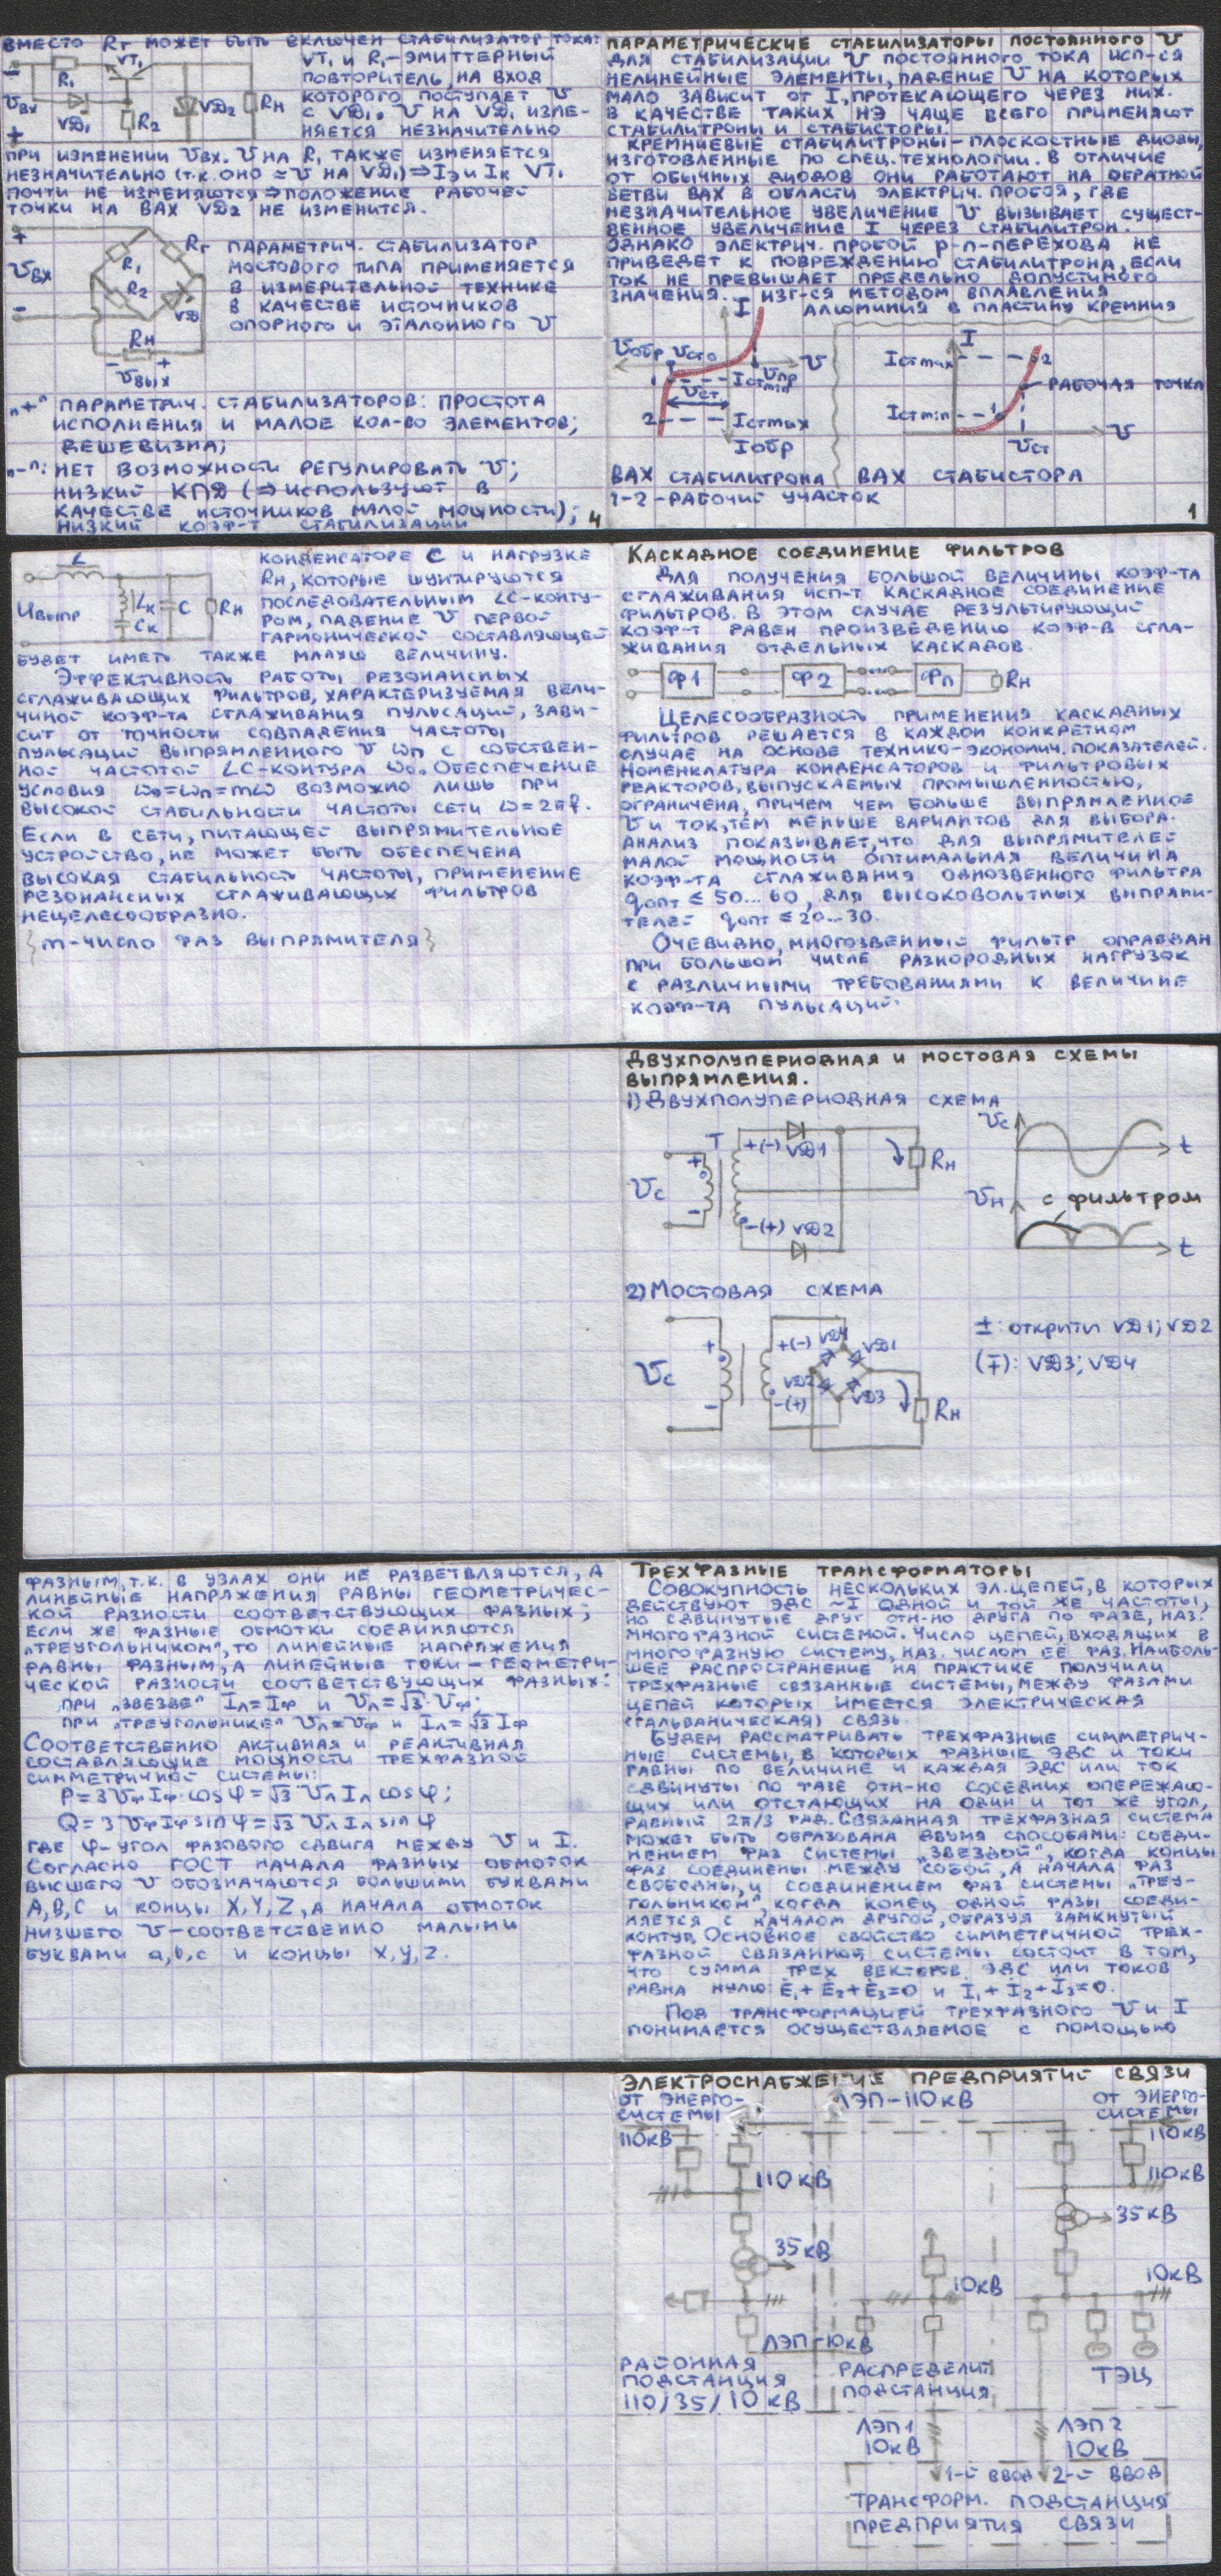 ВМЕСТО Rг МОЖЕТ БЫТЬ ВКЛЮЧЕН СТАБИЛИЗАТОР ТОКА:
R1 VT1
Uвх VD1 R2 VD2 Rн
VT1 И R1-ЭМИТТЕРНЫЙ
ПОВТОРИТЕЛЬ НА ВХОД
КОТОРОГО ПОСТУПАЕТ U
С VD1. U НА VD1 ИЗМЕ-
НЯЕТСЯ НЕЗНАЧИТЕЛЬНО
ПРИ ИЗМЕНЕНИИ Uвх. U НА R1 ТАКЖЕ ИЗМЕНЯЕТСЯ
НЕЗНАЧИТЕЛЬНО (Т.К. ОНО ≈ U НА VD1) ⇒ Iэ И Iк VT1
ПОЧТИ НЕ ИЗМЕНЯЮТСЯ ⇒ ПОЛОЖЕНИЕ РАБОЧЕЙ
ТОЧКИ НА ВАХ VD2 НЕ ИЗМЕНИТСЯ.
+
Uвх
-
R1 Rг
R2 VD
Rн
- +
Uвых
ПАРАМЕТРИЧ. СТАБИЛИЗАТОР
МОСТОВОГО ТИПА ПРИМЕНЯЕТСЯ
В ИЗМЕРИТЕЛЬНОЙ ТЕХНИКЕ
В КАЧЕСТВЕ ИСТОЧНИКОВ
ОПОРНОГО И ЭТАЛОННОГО U
„+" ПАРАМЕТРИЧ. СТАБИЛИЗАТОРОВ: ПРОСТОТА
ИСПОЛНЕНИЯ И МАЛОЕ КОЛ-ВО ЭЛЕМЕНТОВ;
ДЕШЕВИЗНА;
„-": НЕТ ВОЗМОЖНОСТИ РЕГУЛИРОВАТЬ U;
НИЗКИЙ КПД (⇒ ИСПОЛЬЗУЮТ В
КАЧЕСТВЕ ИСТОЧНИКОВ МАЛОЙ МОЩНОСТИ);
НИЗКИЙ КОЭФ-Т СТАБИЛИЗАЦИИ
4
ПАРАМЕТРИЧЕСКИЕ СТАБИЛИЗАТОРЫ ПОСТОЯННОГО U
ДЛЯ СТАБИЛИЗАЦИИ U ПОСТОЯННОГО ТОКА ИСП-СЯ
НЕЛИНЕЙНЫЕ ЭЛЕМЕНТЫ, ПАДЕНИЕ U НА КОТОРЫХ
МАЛО ЗАВИСИТ ОТ I, ПРОТЕКАЮЩЕГО ЧЕРЕЗ НИХ.
В КАЧЕСТВЕ ТАКИХ НЭ ЧАЩЕ ВСЕГО ПРИМЕНЯЮТ
СТАБИЛИТРОНЫ И СТАБИСТОРЫ.
КРЕМНИЕВЫЕ СТАБИЛИТРОНЫ-ПЛОСКОСТНЫЕ ДИОДЫ,
ИЗГОТОВЛЕННЫЕ ПО СПЕЦ. ТЕХНОЛОГИИ. В ОТЛИЧИЕ
ОТ ОБЫЧНЫХ ДИОДОВ ОНИ РАБОТАЮТ НА ОБРАТНОЙ
ВЕТВИ ВАХ В ОБЛАСТИ ЭЛЕКТРИЧ. ПРОБОЯ, ГДЕ
НЕЗНАЧИТЕЛЬНОЕ УВЕЛИЧЕНИЕ U ВЫЗЫВАЕТ СУЩЕСТ-
ВЕННОЕ УВЕЛИЧЕНИЕ I ЧЕРЕЗ СТАБИЛИТРОН.
ОДНАКО ЭЛЕКТРИЧ. ПРОБОЙ p-n-ПЕРЕХОДА НЕ
ПРИВЕДЕТ К ПОВРЕЖДЕНИЮ СТАБИЛИТРОНА, ЕСЛИ
ТОК НЕ ПРЕВЫШАЕТ ПРЕДЕЛЬНО ДОПУСТИМОГО
ЗНАЧЕНИЯ. ИЗГ-СЯ МЕТОДОМ ВПЛАВЛЕНИЯ
АЛЮМИНИЯ В ПЛАСТИНУ КРЕМНИЯ
I
Uобр Uсто U
Uпр
1 Iстmin
Uст
2 Iстmax
Iобр
I
Iстmax 2
РАБОЧАЯ ТОЧКА
Iстmin 1
Uст U
ВАХ СТАБИЛИТРОНА ВАХ СТАБИСТОРА
1-2-РАБОЧИЙ УЧАСТОК
1
L
Uвыпр Lк C Rн
Cк
КОНДЕНСАТОРЕ C И НАГРУЗКЕ
Rн, КОТОРЫЕ ШУНТИРУЮТСЯ
ПОСЛЕДОВАТЕЛЬНЫМ LC-КОНТУ-
РОМ, ПАДЕНИЕ U ПЕРВОЙ
ГАРМОНИЧЕСКОЙ СОСТАВЛЯЮЩЕЙ
БУДЕТ ИМЕТЬ ТАКЖЕ МАЛУЮ ВЕЛИЧИНУ.
ЭФФЕКТИВНОСТЬ РАБОТЫ РЕЗОНАНСНЫХ
СГЛАЖИВАЮЩИХ ФИЛЬТРОВ, ХАРАКТЕРИЗУЕМАЯ ВЕЛИ-
ЧИНОЙ КОЭФ-ТА СГЛАЖИВАНИЯ ПУЛЬСАЦИЙ, ЗАВИ-
СИТ ОТ ТОЧНОСТИ СОВПАДЕНИЯ ЧАСТОТЫ
ПУЛЬСАЦИЙ ВЫПРЯМЛЕННОГО U ωп С СОБСТВЕН-
НОЙ ЧАСТОТОЙ LC-КОНТУРА ω0. ОБЕСПЕЧЕНИЕ
УСЛОВИЯ ω0=ωп=mω ВОЗМОЖНО ЛИШЬ ПРИ
ВЫСОКОЙ СТАБИЛЬНОСТИ ЧАСТОТЫ СЕТИ ω=2πf.
ЕСЛИ В СЕТИ, ПИТАЮЩЕЙ ВЫПРЯМИТЕЛЬНОЕ
УСТРОЙСТВО, НЕ МОЖЕТ БЫТЬ ОБЕСПЕЧЕНА
ВЫСОКАЯ СТАБИЛЬНОСТЬ ЧАСТОТЫ, ПРИМЕНЕНИЕ
РЕЗОНАНСНЫХ СГЛАЖИВАЮЩИХ ФИЛЬТРОВ
НЕЦЕЛЕСООБРАЗНО.
{m-ЧИСЛО ФАЗ ВЫПРЯМИТЕЛЯ}
КАСКАДНОЕ СОЕДИНЕНИЕ ФИЛЬТРОВ
ДЛЯ ПОЛУЧЕНИЯ БОЛЬШОЙ ВЕЛИЧИНЫ КОЭФ-ТА
СГЛАЖИВАНИЯ ИСП-Т КАСКАДНОЕ СОЕДИНЕНИЕ
ФИЛЬТРОВ. В ЭТОМ СЛУЧАЕ РЕЗУЛЬТИРУЮЩИЙ
КОЭФ-Т РАВЕН ПРОИЗВЕДЕНИЮ КОЭФ-В СГЛА-
ЖИВАНИЯ ОТДЕЛЬНЫХ КАСКАДОВ.
Ф1 Ф2 Фn Rн
ЦЕЛЕСООБРАЗНОСТЬ ПРИМЕНЕНИЯ КАСКАДНЫХ
ФИЛЬТРОВ РЕШАЕТСЯ В КАЖДОМ КОНКРЕТНОМ
СЛУЧАЕ НА ОСНОВЕ ТЕХНИКО-ЭКОНОМИЧ. ПОКАЗАТЕЛЕЙ.
НОМЕНКЛАТУРА КОНДЕНСАТОРОВ И ФИЛЬТРОВЫХ
РЕАКТОРОВ, ВЫПУСКАЕМЫХ ПРОМЫШЛЕННОСТЬЮ,
ОГРАНИЧЕНА, ПРИЧЕМ ЧЕМ БОЛЬШЕ ВЫПРЯМЛЕННОЕ
U И ТОК, ТЕМ МЕНЬШЕ ВАРИАНТОВ ДЛЯ ВЫБОРА.
АНАЛИЗ ПОКАЗЫВАЕТ, ЧТО ДЛЯ ВЫПРЯМИТЕЛЕЙ
МАЛОЙ МОЩНОСТИ ОПТИМАЛЬНАЯ ВЕЛИЧИНА
КОЭФ-ТА СГЛАЖИВАНИЯ ОДНОЗВЕННОГО ФИЛЬТРА
qопт ≤ 50...60, ДЛЯ ВЫСОКОВОЛЬТНЫХ ВЫПРЯМИ-
ТЕЛЕЙ qопт ≤ 20...30.
ОЧЕВИДНО, МНОГОЗВЕННЫЙ ФИЛЬТР ОПРАВДАН
ПРИ БОЛЬШОМ ЧИСЛЕ РАЗНОРОДНЫХ НАГРУЗОК
С РАЗЛИЧНЫМИ ТРЕБОВАНИЯМИ К ВЕЛИЧИНЕ
КОЭФ-ТА ПУЛЬСАЦИЙ.
ДВУХПОЛУПЕРИОДНАЯ И МОСТОВАЯ СХЕМЫ
ВЫПРЯМЛЕНИЯ.
1) ДВУХПОЛУПЕРИОДНАЯ СХЕМА
T +(-) VD1
+
Uс Rн
-
-(+) VD2
Uс t
Uн с фильтром
t
2) МОСТОВАЯ СХЕМА
+ +(-) VD4 VD1
Uс VD2 VD3
- -(+) Rн
±: ОТКРЫТЫ VD1; VD2
(∓): VD3; VD4
ФАЗНЫМ, Т.К. В УЗЛАХ ОНИ НЕ РАЗВЕТВЛЯЮТСЯ, А
ЛИНЕЙНЫЕ НАПРЯЖЕНИЯ РАВНЫ ГЕОМЕТРИЧЕС-
КОЙ РАЗНОСТИ СООТВЕТСТВУЮЩИХ ФАЗНЫХ;
ЕСЛИ ЖЕ ФАЗНЫЕ ОБМОТКИ СОЕДИНЯЮТСЯ
„ТРЕУГОЛЬНИКОМ", ТО ЛИНЕЙНЫЕ НАПРЯЖЕНИЯ
РАВНЫ ФАЗНЫМ, А ЛИНЕЙНЫЕ ТОКИ - ГЕОМЕТРИ-
ЧЕСКОЙ РАЗНОСТИ СООТВЕТСТВУЮЩИХ ФАЗНЫХ:
ПРИ „ЗВЕЗДЕ" Iл=Iф И Uл=√3 Uф;
ПРИ „ТРЕУГОЛЬНИКЕ" Uл=Uф И Iл=√3 Iф
СООТВЕТСТВЕННО АКТИВНАЯ И РЕАКТИВНАЯ
СОСТАВЛЯЮЩИЕ МОЩНОСТИ ТРЕХФАЗНОЙ
СИММЕТРИЧНОЙ СИСТЕМЫ:
P=3UфIф·cosφ=√3 UлIл cosφ;
Q=3UфIф sinφ=√3 UлIл sinφ
ГДЕ φ-УГОЛ ФАЗОВОГО СДВИГА МЕЖДУ U И I.
СОГЛАСНО ГОСТ НАЧАЛА ФАЗНЫХ ОБМОТОК
ВЫСШЕГО U ОБОЗНАЧАЮТСЯ БОЛЬШИМИ БУКВАМИ
A,B,C И КОНЦЫ X,Y,Z, А НАЧАЛА ОБМОТОК
НИЗШЕГО U-СООТВЕТСТВЕННО МАЛЫМИ
БУКВАМИ a,b,c И КОНЦЫ x,y,z.
ТРЕХФАЗНЫЕ ТРАНСФОРМАТОРЫ
СОВОКУПНОСТЬ НЕСКОЛЬКИХ ЭЛ. ЦЕПЕЙ, В КОТОРЫХ
ДЕЙСТВУЮТ ЭДС ~I ОДНОЙ И ТОЙ ЖЕ ЧАСТОТЫ,
НО СДВИНУТЫЕ ДРУГ ОТН-НО ДРУГА ПО ФАЗЕ, НАЗ.
МНОГОФАЗНОЙ СИСТЕМОЙ. ЧИСЛО ЦЕПЕЙ, ВХОДЯЩИХ В
МНОГОФАЗНУЮ СИСТЕМУ, НАЗ. ЧИСЛОМ ЕЕ ФАЗ. НАИБОЛЬ-
ШЕЕ РАСПРОСТРАНЕНИЕ НА ПРАКТИКЕ ПОЛУЧИЛИ
ТРЕХФАЗНЫЕ СВЯЗАННЫЕ СИСТЕМЫ, МЕЖДУ ФАЗАМИ
ЦЕПЕЙ КОТОРЫХ ИМЕЕТСЯ ЭЛЕКТРИЧЕСКАЯ
(ГАЛЬВАНИЧЕСКАЯ) СВЯЗЬ.
БУДЕМ РАССМАТРИВАТЬ ТРЕХФАЗНЫЕ СИММЕТРИЧ-
НЫЕ СИСТЕМЫ, В КОТОРЫХ ФАЗНЫЕ ЭДС И ТОКИ
РАВНЫ ПО ВЕЛИЧИНЕ И КАЖДАЯ ЭДС ИЛИ ТОК
СДВИНУТЫ ПО ФАЗЕ ОТН-НО СОСЕДНИХ ОПЕРЕЖАЮ-
ЩИХ ИЛИ ОТСТАЮЩИХ НА ОДИН И ТОТ ЖЕ УГОЛ,
РАВНЫЙ 2π/3 РАД. СВЯЗАННАЯ ТРЕХФАЗНАЯ СИСТЕМА
МОЖЕТ БЫТЬ ОБРАЗОВАНА ДВУМЯ СПОСОБАМИ: СОЕДИ-
НЕНИЕМ ФАЗ СИСТЕМЫ „ЗВЕЗДОЙ", КОГДА КОНЦЫ
ФАЗ СОЕДИНЕНЫ МЕЖДУ СОБОЙ, А НАЧАЛА ФАЗ
СВОБОДНЫ, И СОЕДИНЕНИЕМ ФАЗ СИСТЕМЫ „ТРЕУ-
ГОЛЬНИКОМ", КОГДА КОНЕЦ ОДНОЙ ФАЗЫ СОЕДИ-
НЯЕТСЯ С НАЧАЛОМ ДРУГОЙ, ОБРАЗУЯ ЗАМКНУТЫЙ
КОНТУР. ОСНОВНОЕ СВОЙСТВО СИММЕТРИЧНОЙ ТРЕХ-
ФАЗНОЙ СВЯЗАННОЙ СИСТЕМЫ СОСТОИТ В ТОМ,
ЧТО СУММА ТРЕХ ВЕКТОРОВ ЭДС ИЛИ ТОКОВ
РАВНА НУЛЮ: Ė1+Ė2+Ė3=0 И İ1+İ2+İ3=0.
ПОД ТРАНСФОРМАЦИЕЙ ТРЕХФАЗНОГО U И I
ПОНИМАЕТСЯ ОСУЩЕСТВЛЯЕМОЕ С ПОМОЩЬЮ
ЭЛЕКТРОСНАБЖЕНИЕ ПРЕДПРИЯТИЙ СВЯЗИ
ОТ ЭНЕРГО-
СИСТЕМЫ
ЛЭП-110кВ
ОТ ЭНЕРГО-
СИСТЕМЫ
110кВ 110кВ
110кВ 110кВ
35кВ
35кВ
10кВ 10кВ
ЛЭП-10кВ
РАЙОННАЯ
ПОДСТАНЦИЯ
110/35/10кВ
РАСПРЕДЕЛИТ.
ПОДСТАНЦИЯ
ТЭЦ
ЛЭП1
10кВ
ЛЭП2
10кВ
1-Й ВВОД 2-Й ВВОД
ТРАНСФОРМ. ПОДСТАНЦИЯ
ПРЕДПРИЯТИЯ СВЯЗИ